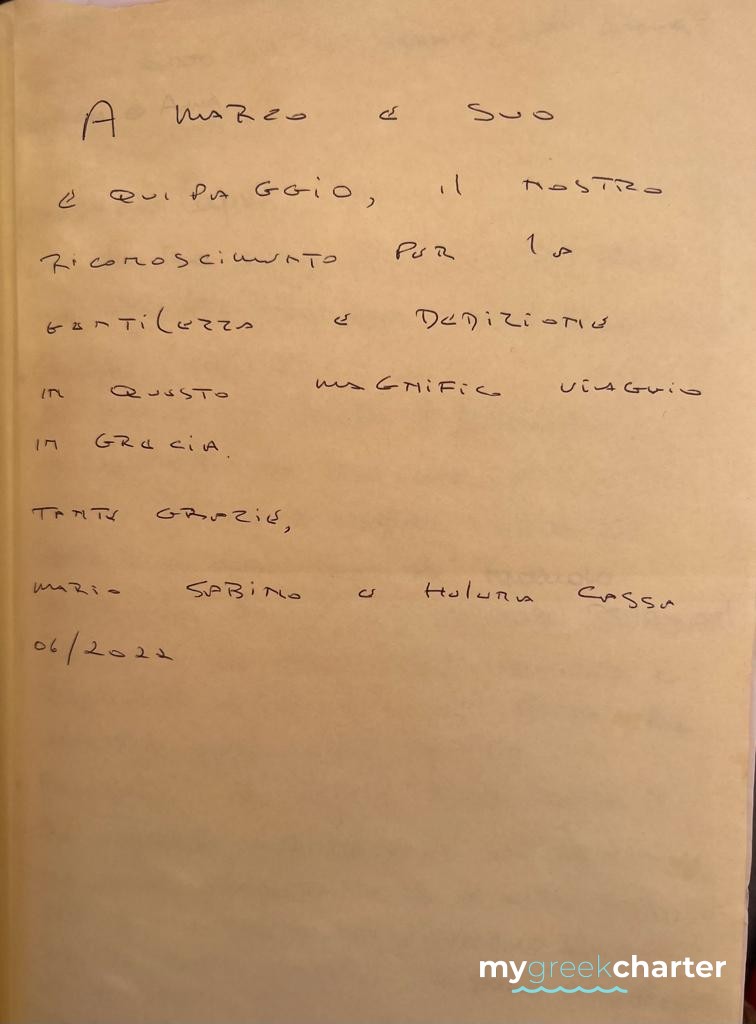 A MARZO E SUO
EQUIPAGGIO, il NOSTRO
RICONOSCIMENTO PER la
GENTILEZZA E DEDIZIONE
IN QUESTO MAGNIFICO VIAGGIO
IN GRECIA.
TANTE GRAZIE,
MARIO SABINO E HELENA CASSA
06/2022
mygreekcharter